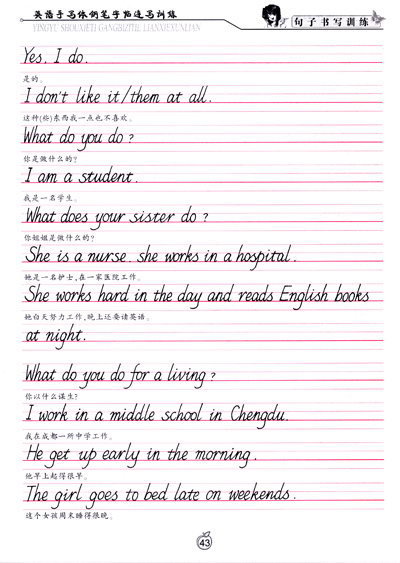 英语手写体钢笔字快速写训练
YINGYU SHOUXIETI GANGBIZITIE LIANXIXUNLIAN
句子书写训练
Yes, I do.
是的。
I don't like it/them at all.
这种(些)东西我一点也不喜欢。
What do you do?
你是做什么的?
I am a student.
我是一名学生。
What does your sister do?
你姐姐是做什么的?
She is a nurse. she works in a hospital.
她是一名护士,在一家医院工作。
She works hard in the day and reads English books
她白天努力工作,晚上还要读英语。
at night.
What do you do for a living?
你以什么谋生?
I work in a middle school in Chengdu.
我在成都一所中学工作。
He get up early in the morning.
他早上起得很早。
The girl goes to bed late on weekends.
这个女孩周末睡得很晚。
43